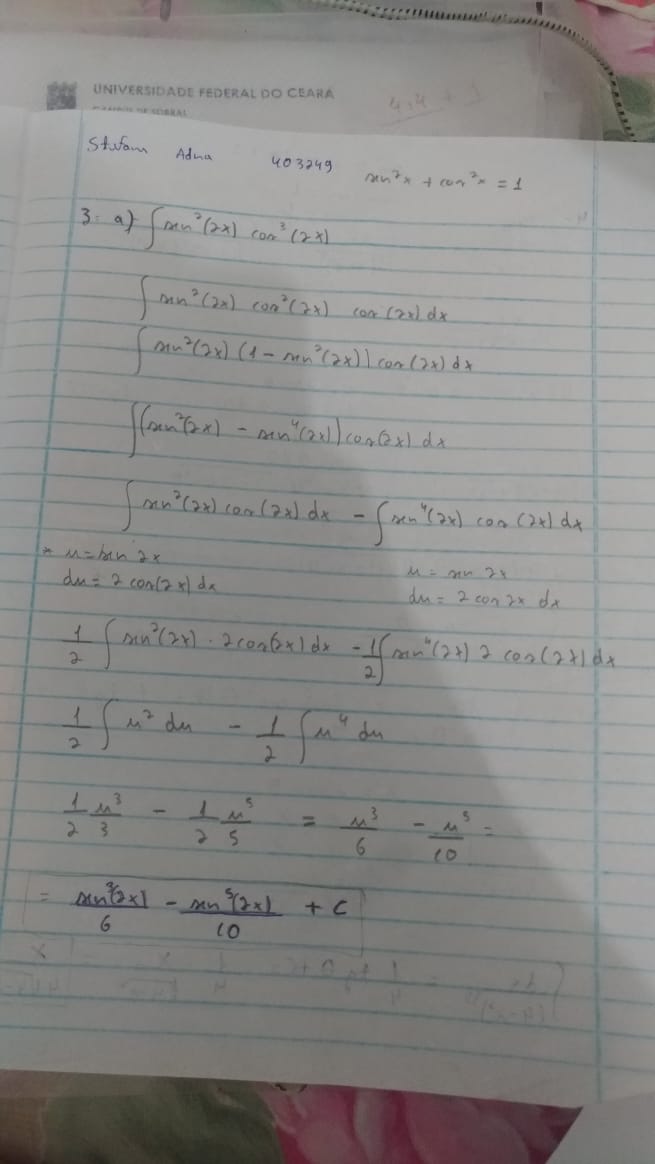 UNIVERSIDADE FEDERAL DO CEARÁ
CAMPUS DE SOBRAL
Adna 403249 sen²x + cos²x = 1
3. a) ∫ sen²(2x) cos³(2x)
∫ sen²(2x) cos²(2x) cos(2x) dx
∫ sen²(2x) (1 - sen²(2x)) cos(2x) dx
∫ (sen²(2x) - sen⁴(2x)) cos(2x) dx
∫ sen²(2x) cos(2x) dx - ∫ sen⁴(2x) cos(2x) dx
* u = sen 2x u = sen 2x
du = 2 cos(2x) dx du = 2 cos 2x dx
1/2 ∫ sen²(2x) · 2 cos(2x) dx - 1/2 ∫ sen⁴(2x) 2 cos(2x) dx
1/2 ∫ u² du - 1/2 ∫ u⁴ du
1/2 u³/3 - 1/2 u⁵/5 = u³/6 - u⁵/10 =
= sen³(2x)/6 - sen⁵(2x)/10 + C